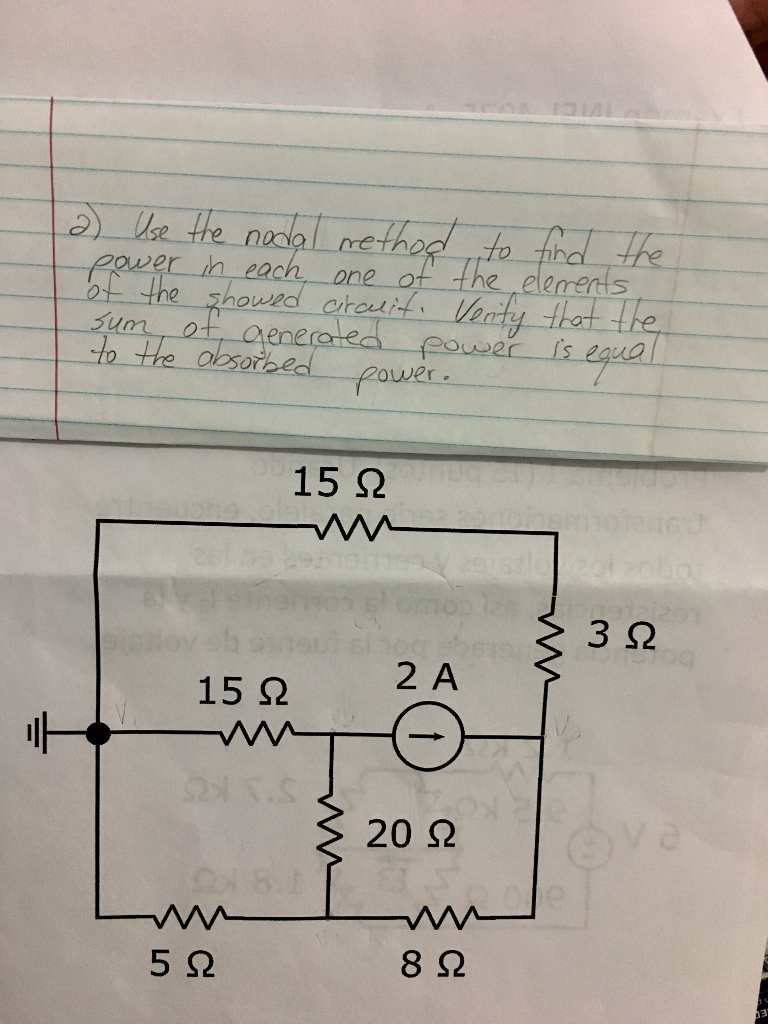 2) Use the nodal method to find the
power in each one of the elements
of the showed circuit. Verify that the
sum of generated power is equal
to the absorbed power.
15 Ω
3 Ω
2 A
15 Ω
V₁
20 Ω
5 Ω
8 Ω